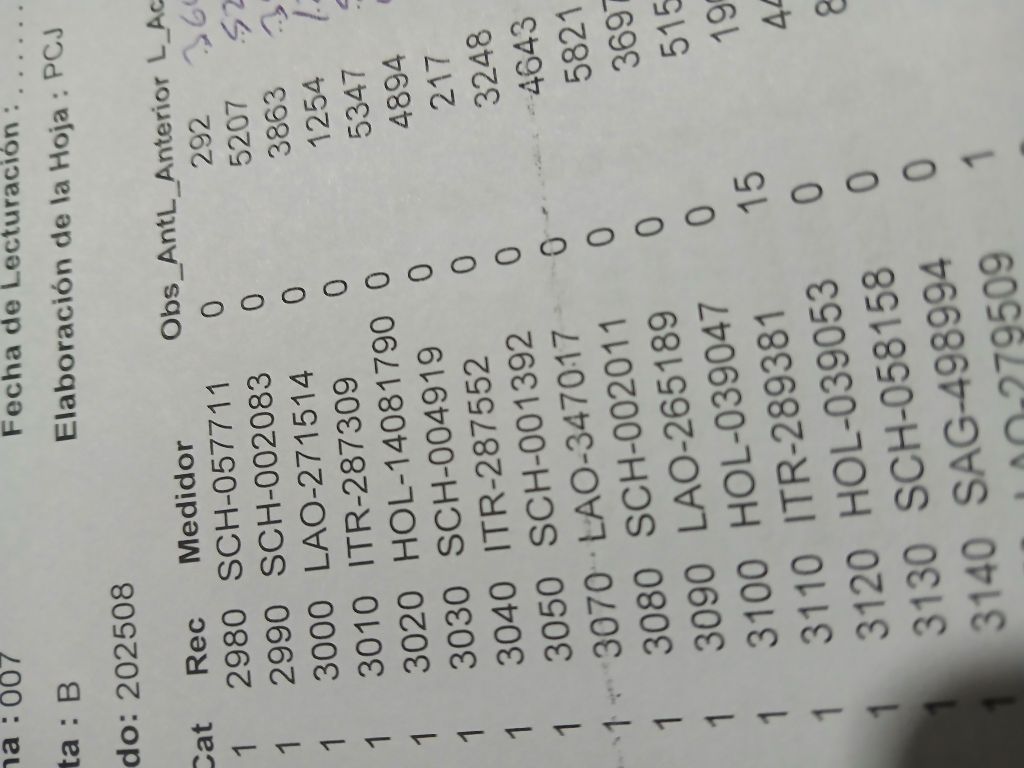 na : 007 Fecha de Lecturación : . . . . .
ta : B Elaboración de la Hoja : PCJ
do : 202508
Cat Rec Medidor Obs_AntL_Anterior L_Ac
1 2980 SCH-057711 0 292
1 2990 SCH-002083 0 5207
1 3000 LAO-271514 0 3863
1 3010 ITR-287309 0 1254
1 3020 HOL-14081790 0 5347
1 3030 SCH-004919 0 4894
1 3040 ITR-287552 0 217
1 3050 SCH-001392 0 3248
1 3070 LAO-347017 0 4643
1 3080 SCH-002011 0 5821
1 3090 LAO-265189 0 3697
1 3100 HOL-039047 0 515
1 3110 ITR-289381 15
1 3120 HOL-039053 0 44
1 3130 SCH-058158 0 8
1 3140 SAG-498994 0
LAO-279509 1